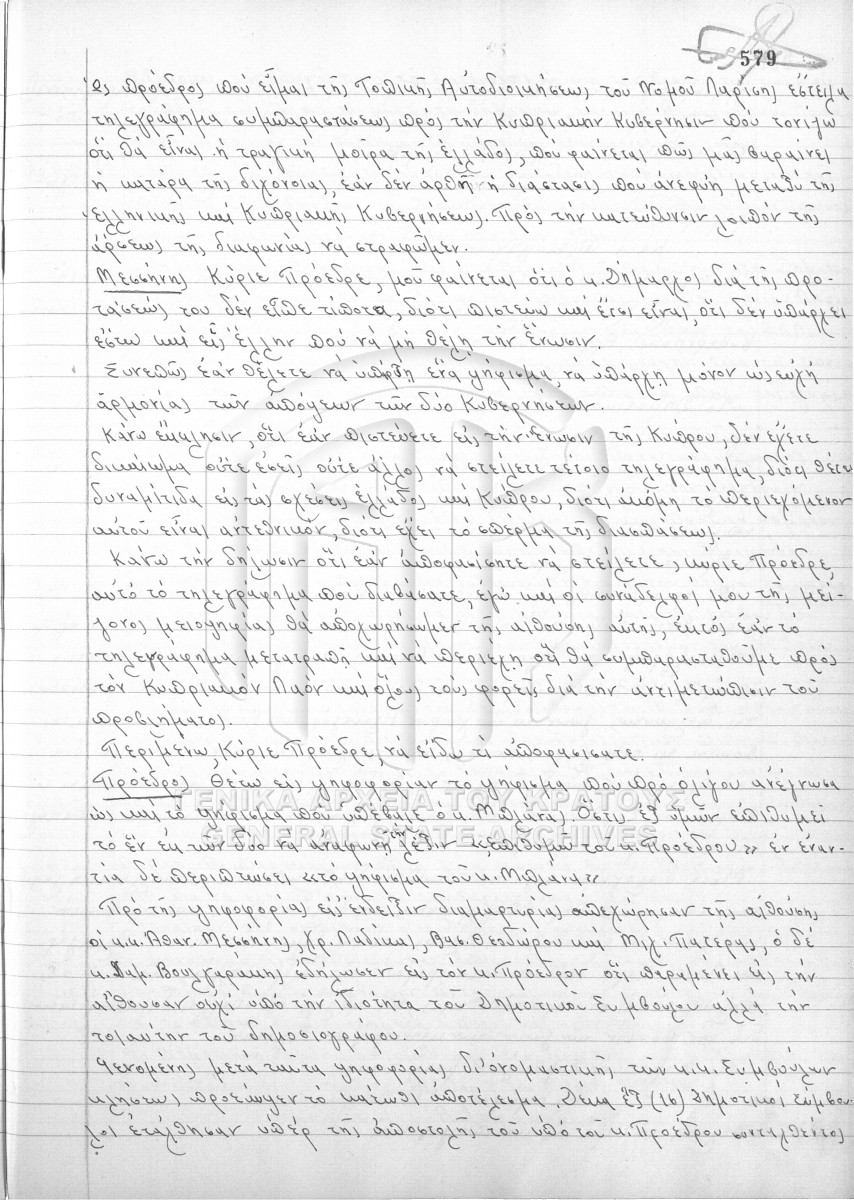 579
ὡς πρόεδρος ποὺ εἶμαι τῆς Τοπικῆς Αὐτοδιοικήσεως τοῦ Νομοῦ Λαρίσης ἔστειλα
τηλεγράφημα συμπαραστάσεως πρὸς τὴν Κυπριακὴν Κυβέρνησιν ποὺ τονίζω
ὅτι θὰ εἶναι ἡ τραγικὴ μοῖρα τῆς Ἑλλάδος, ποὺ φαίνεται πὼς μᾶς βαραίνει
ἡ κατάρα τῆς διχόνοιας, ἐὰν δὲν ἀρθῆ ἡ διάστασις ποὺ ἀνεφύη μεταξὺ τῆς
Ἑλληνικῆς καὶ Κυπριακῆς Κυβερνήσεως. Πρὸς τὴν κατεύθυνσιν λοιπὸν τῆς
ἄρσεως τῆς διαφωνίας νὰ στραφῶμεν.
Μεσσήνης Κύριε Πρόεδρε, μοῦ φαίνεται ὅτι ὁ κ. Δήμαρχος διὰ τῆς προ-
τάσεώς του δὲν εἶπε τίποτα, διότι πιστεύω καὶ ἔτσι εἶναι, ὅτι δὲν ὑπάρχει
ἔστω καὶ εἷς Ἕλλην ποὺ νὰ μὴ θέλη τὴν Ἕνωσιν.
Συνεπῶς ἐὰν θέλετε νὰ ὑπάρξη ἕνα ψήφισμα, νὰ ὑπάρχη μόνον ὡς εὐχὴ
ἁρμονίας τῶν ἀπόψεων τῶν δύο Κυβερνήσεων.
Κάνω ἔκκλησιν, ὅτι ἐὰν πιστεύετε εἰς τὴν Ἕνωσιν τῆς Κύπρου, δὲν ἔχετε
δικαίωμα οὔτε ἐσεῖς οὔτε ἄλλος νὰ στείλετε τέτοιο τηλεγράφημα, διότι θέτει
δυναμίτιδα εἰς τὰς σχέσεις Ἑλλάδος καὶ Κύπρου, διότι ἀκόμη τὸ περιεχόμενον
αὐτοῦ εἶναι ἀντεθνικόν, διότι ἔχει τὸ σπέρμα τῆς διασπάσεως.
Κάνω τὴν δήλωσιν ὅτι ἐὰν ἀποφασίσητε νὰ στείλετε, κύριε Πρόεδρε
αὐτὸ τὸ τηλεγράφημα ποὺ διαβάσατε, ἐγὼ καὶ οἱ συνάδελφοί μου τῆς μεί-
ζονος μειοψηφίας θὰ ἀποχωρήσωμεν τῆς αἰθούσης αὐτῆς, ἐκτὸς ἐὰν τὸ
τηλεγράφημα μετατραπῆ καὶ νὰ περιέχη ὅτι θὰ συμπαρασταθοῦμε πρὸς
τὸν Κυπριακὸν Λαὸν καὶ ὅλους τοὺς φορεῖς διὰ τὴν ἀντιμετώπισιν τοῦ
προβλήματος.
Περιμένω, Κύριε Πρόεδρε, νὰ εἴδω τί ἀποφασίσατε.
Πρόεδρος Θέτω εἰς ψηφοφορίαν τὸ ψήφισμα ποὺ πρὸ ὀλίγου ἀνέγνωσα
ὡς καὶ τὸ ψήφισμα ποὺ ὑπέβαλε ὁ κ. Μπλάνας. Ὅστις ἐξ ὑμῶν ἐπιθυμεῖ
τὸ ἓν ἐκ τῶν δύο νὰ ἀναφωνῆ τὴν λέξιν «ἐπιθυμῶ τοῦ κ. Προέδρου» ἐν ἐναν-
τία δὲ περιπτώσει «τὸ ψήφισμα τοῦ κ. Μπλάνα»
Πρὸ τῆς ψηφοφορίας εἰς ἔνδειξιν διαμαρτυρίας ἀπεχώρησαν τῆς αἰθούσης
οἱ κ.κ. Ἀθαν. Μεσσήνης, Χρ. Λαδίκας, Βασ. Θεοδώρου καὶ Μιχ. Πατέρας, ὁ δὲ
κ. Δαμ. Βουλγαράκης ἐδήλωσεν εἰς τὸν κ. Πρόεδρον ὅτι παραμένει εἰς τὴν
αἴθουσαν οὐχὶ ὑπὸ τὴν ἰδιότητα τοῦ Δημοτικοῦ Συμβούλου ἀλλὰ τὴν
τοιαύτην τοῦ δημοσιογράφου.
Γενομένης μετὰ ταῦτα ψηφοφορίας δι' ὀνομαστικῆς τῶν κ.κ. Συμβούλων
κλήσεως προέκυψεν τὸ κάτωθι ἀποτέλεσμα. Δέκα ἓξ (16) Δημοτικοὶ Σύμβου-
λοι ἐτάχθησαν ὑπὲρ τῆς ἀποστολῆς τοῦ ὑπὸ τοῦ κ. Προέδρου συνταχθέντος
ΓΕΝΙΚΑ ΑΡΧΕΙΑ ΤΟΥ ΚΡΑΤΟΥΣ
GENERAL STATE ARCHIVES